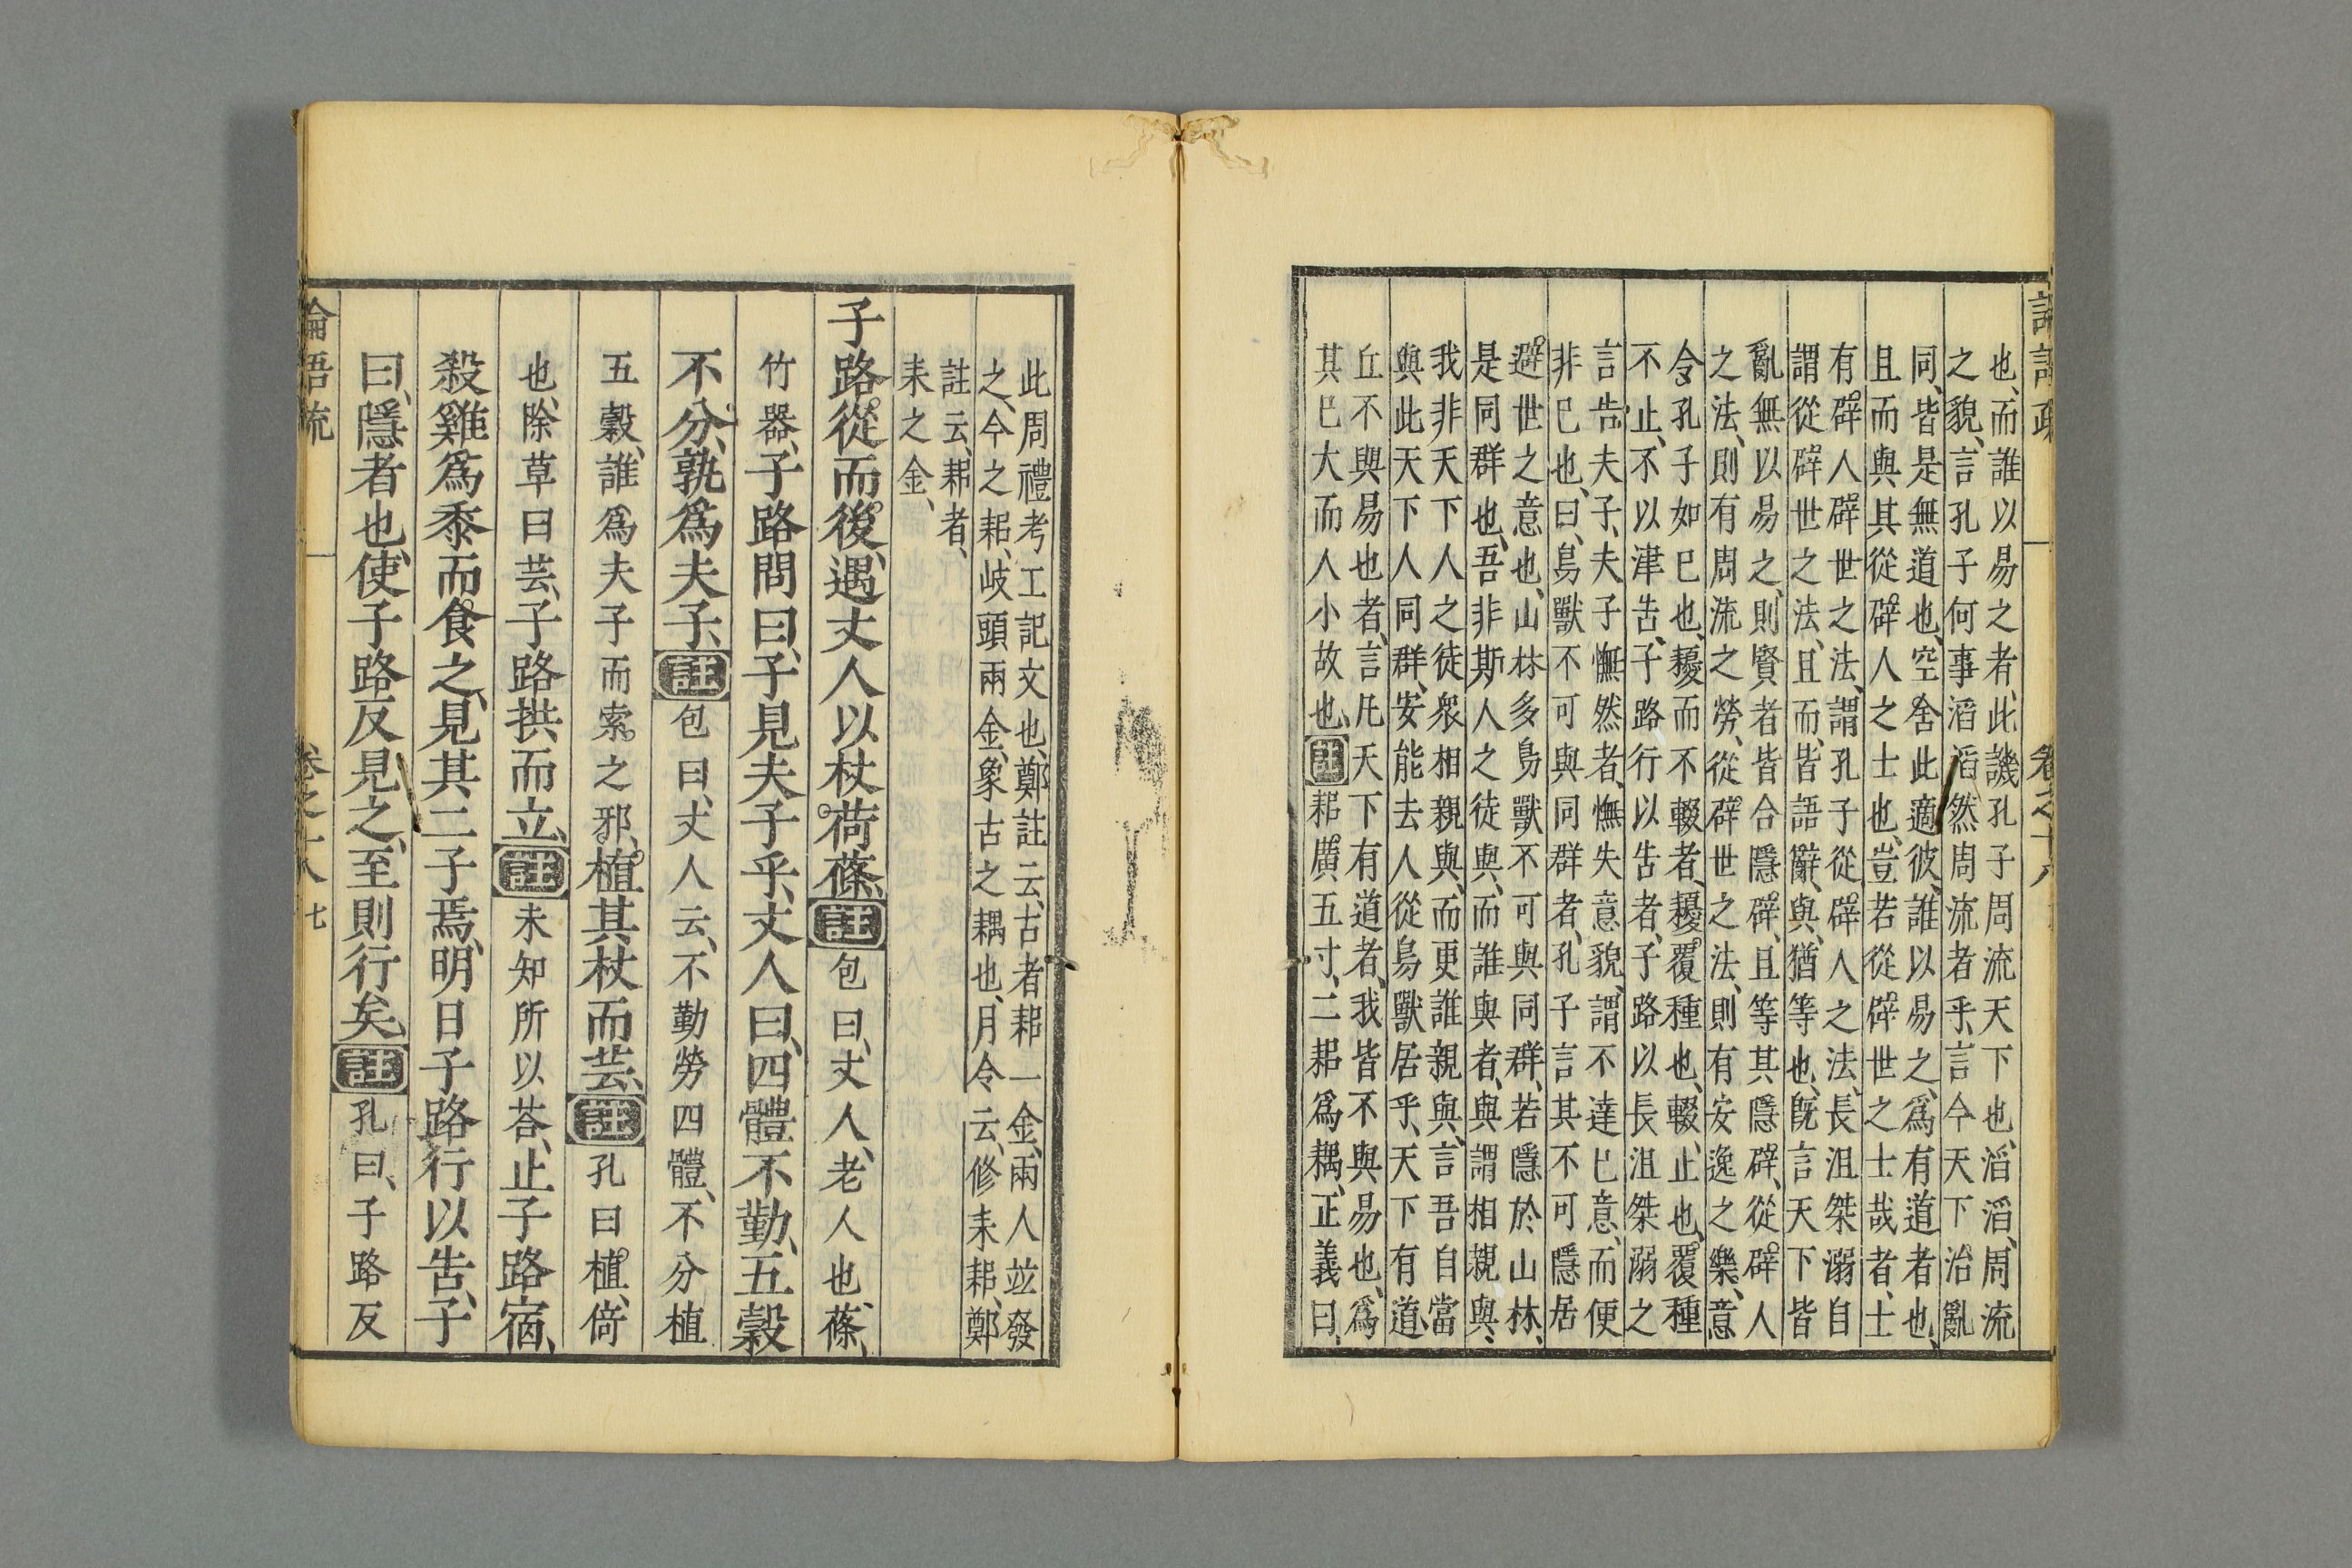 論語疏
卷之十八
也、而誰以易之者、此譏孔子周流天下也、滔滔、周流
之貌、言孔子何事滔滔然周流者乎、言今天下治亂
同、皆是無道也、空舍此適彼、誰以易之、爲有道者也、
且而與其從辟人之士也、豈若從辟世之士哉者、士
有辟人辟世之法、謂孔子從辟人之法、長沮桀溺自
謂從辟世之法、且而、皆語辭、與、猶等也、既言天下皆
亂無以易之、則賢者皆合隱辟、且等其隱辟、從辟人
之法、則有周流之勞、從辟世之法、則有安逸之樂、意
令孔子如己也、耰而不輟者、耰、覆種也、輟、止也、覆種
不止、不以津告、子路行以告者、子路以長沮桀溺之
言告夫子、夫子憮然者、憮、失意貌、謂不達己意、而便
非己也、曰、鳥獸不可與同群者、孔子言其不可隱居
避世之意也、山林多鳥獸不可與同群、若隱於山林、
是同群也、吾非斯人之徒與、而誰與者、與謂相親與、
我非天下人之徒衆相親與、而更誰親與、言吾自當
與此天下人同群、安能去人從鳥獸居乎、天下有道、
丘不與易也者、言凡天下有道者、我皆不與易也、爲
其己大而人小故也、註耜廣五寸、二耜爲耦、正義曰、
此周禮考工記文也、鄭註云、古者耜一金、兩人竝發
之、今之耜、岐頭兩金、象古之耦也、月令云、修耒耜、鄭
註云、耜者、
耒之金、
子路從而後、遇丈人以杖荷蓧、註包曰、丈人、老人也、蓧、
竹器、子路問曰、子見夫子乎、丈人曰、四體不勤、五穀
不分、孰爲夫子、註包曰、丈人云、不勤勞四體、不分植
五穀、誰爲夫子而索之邪、植其杖而芸、註孔曰植、倚
也、除草曰芸、子路拱而立、註未知所以荅、止子路宿、
殺雞爲黍而食之、見其二子焉、明日子路行以告、子
曰、隱者也、使子路反見之、至則行矣、註孔曰、子路反
論語疏
卷之十八
七